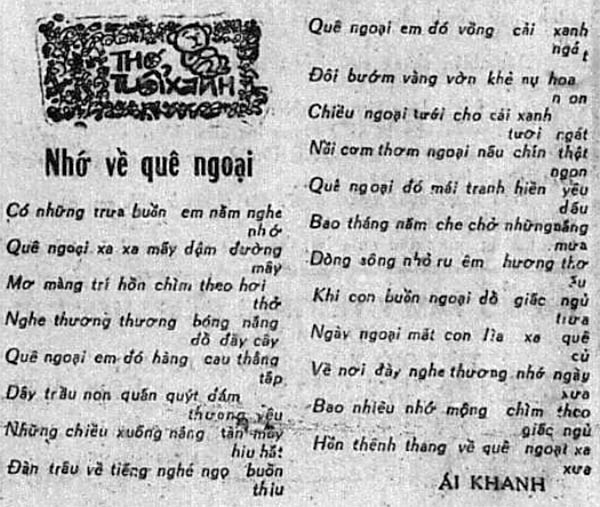 THƠ
TUỔI XANH
Nhớ về quê ngoại
Có những trưa buồn em nằm nghe
nhớ
Quê ngoại xa xa mấy dậm đường
mây
Mơ màng trí hồn chìm theo hơi
thở
Nghe thương thương bóng nắng
đổ đầy cây
Quê ngoại em đó hàng cau thẳng
tắp
Dây trầu non quấn quýt đám
thương yêu
Những chiều xuống nắng tàn mây
hiu hắt
Đàn trâu về tiếng nghé ngọ buồn
thiu
Quê ngoại em đó vồng cải xanh
ngắt
Đôi bướm vàng vờn khẻ nụ hoa
non
Chiều ngoại tưới cho cải xanh
tươi ngát
Nồi cơm thơm ngoại nấu chín thật
ngon
Quê ngoại đó mái tranh hiền yêu
dấu
Bao tháng năm che chở những nắng
mưa
Dòng sông nhỏ ru êm hương thơ
ấu
Khi con buồn ngoại dỗ giấc ngủ
trưa
Ngày ngoại mất con lìa xa quê
cũ
Về nơi đây nghe thương nhớ ngày
xưa
Bao nhiêu nhớ mộng chìm theo
giấc ngủ
Hồn thênh thang về quê ngoại xa
xưa
ÁI KHANH